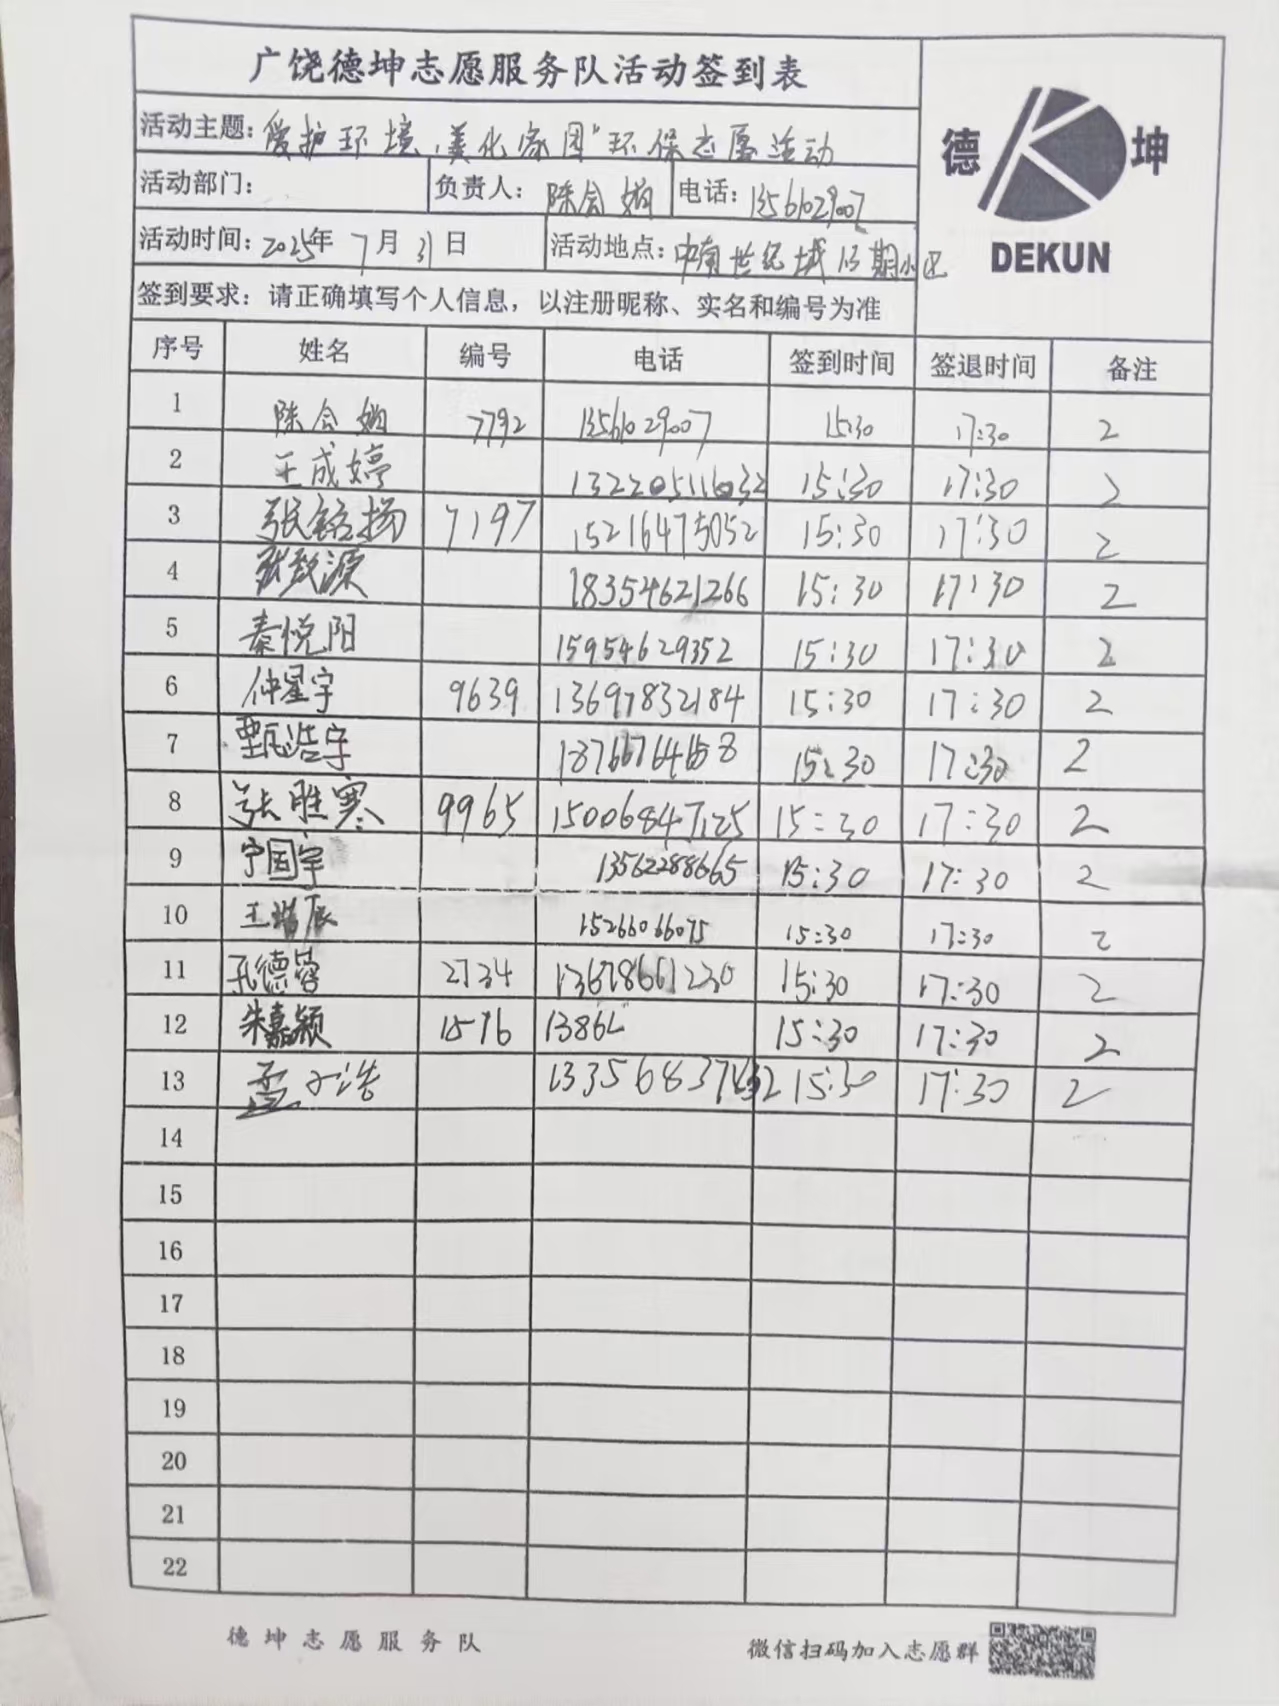 广饶德坤志愿服务队活动签到表
德 坤
DEKUN
活动主题：爱护环境，美化家园"环保志愿活动
活动部门： 负责人：陈会娟 电话：13561029007
活动时间：2025年 7月 31日 活动地点：中南世纪城13期小区
签到要求：请正确填写个人信息，以注册昵称、实名和编号为准
序号 姓名 编号 电话 签到时间 签退时间 备注
1 陈会娟 7792 13561029007 15:30 17:30 2
2 王成婷 15:30 17:30 2
3 张铭扬 7197 15216475052 15:30 17:30 2
4 张致源 18354621266 15:30 17:30 2
5 秦悦阳 15954629352 15:30 17:30 2
6 仲星宇 9639 13697832184 15:30 17:30 2
7 甄浩宇 15:30 17:30 2
8 张胜寒 9965 15006847125 15:30 17:30 2
9 宁国宇 13562288665 15:30 17:30 2
10 15266066075 15:30 17:30 2
11 孔德蓉 2734 15:30 17:30 2
12 朱嘉颖 1576 1386 15:30 17:30 2
13 孟小浩 15:30 17:30 2
14
15
16
17
18
19
20
21
22
德坤志愿服务队 微信扫码加入志愿群